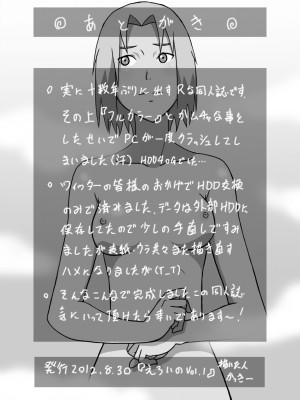 ◎あとがき◎
◎実に十数年ぶりに出すRな同人誌です.
その上『フルカラー』とかムチャな事を
したせいでPCが一度クラッシュしてし
まいました(汗)
◎ツイッターの皆様のおかげでHDD交換
のみで済みました.データは外部HDDに
保存してたので少しの手直しですみ
ましたが表紙・ウラ表々また描き直す
ハメになりましたが(T_T)
◎そんなこんなで完成しましたこの同人誌
気にいって頂けたら幸いであります〜!
発行2012.8.30『えろいのVol.1』
描いた人
かっきー